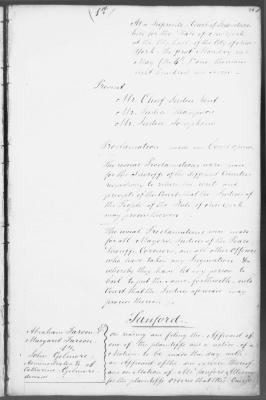 At a Supreme Court of Judicature
held for the State of New York
at the City Hall of the City of New
York the first Monday in
May (the 4th) One thousand
eight hundred and seven
Present
Mr. Chief Justice Kent
Mr. Justice Thompson
Mr. Justice Tompkins
Proclamation made and Court opened
The usual Proclamations were made
for the Sheriffs of the different Counties
respectively to return the writs and
precepts of the Court that the Justices of
the People of the State of New York
may proceed thereon
The usual Proclamations were made
for all Mayors Justices of the Peace
Sheriffs Coroners, and all other Officers
who have taken any Inquisition &c
whereby they have let any person to
bail to put the same forthwith into
Court that the Justices afores'd may
proceed thereon
Sanford
Abraham Larson &
Margaret Larson
John Gelmore
Administrator &c of
Catherine Gelmore
deceased
On reading and filing the Affidavit of
one of the plaintiffs and a notice of a
Motion to be made this day with
an Affidavit of the due service thereof
and on Motion of Mr. Attorney
for the plaintiffs Ordered that the